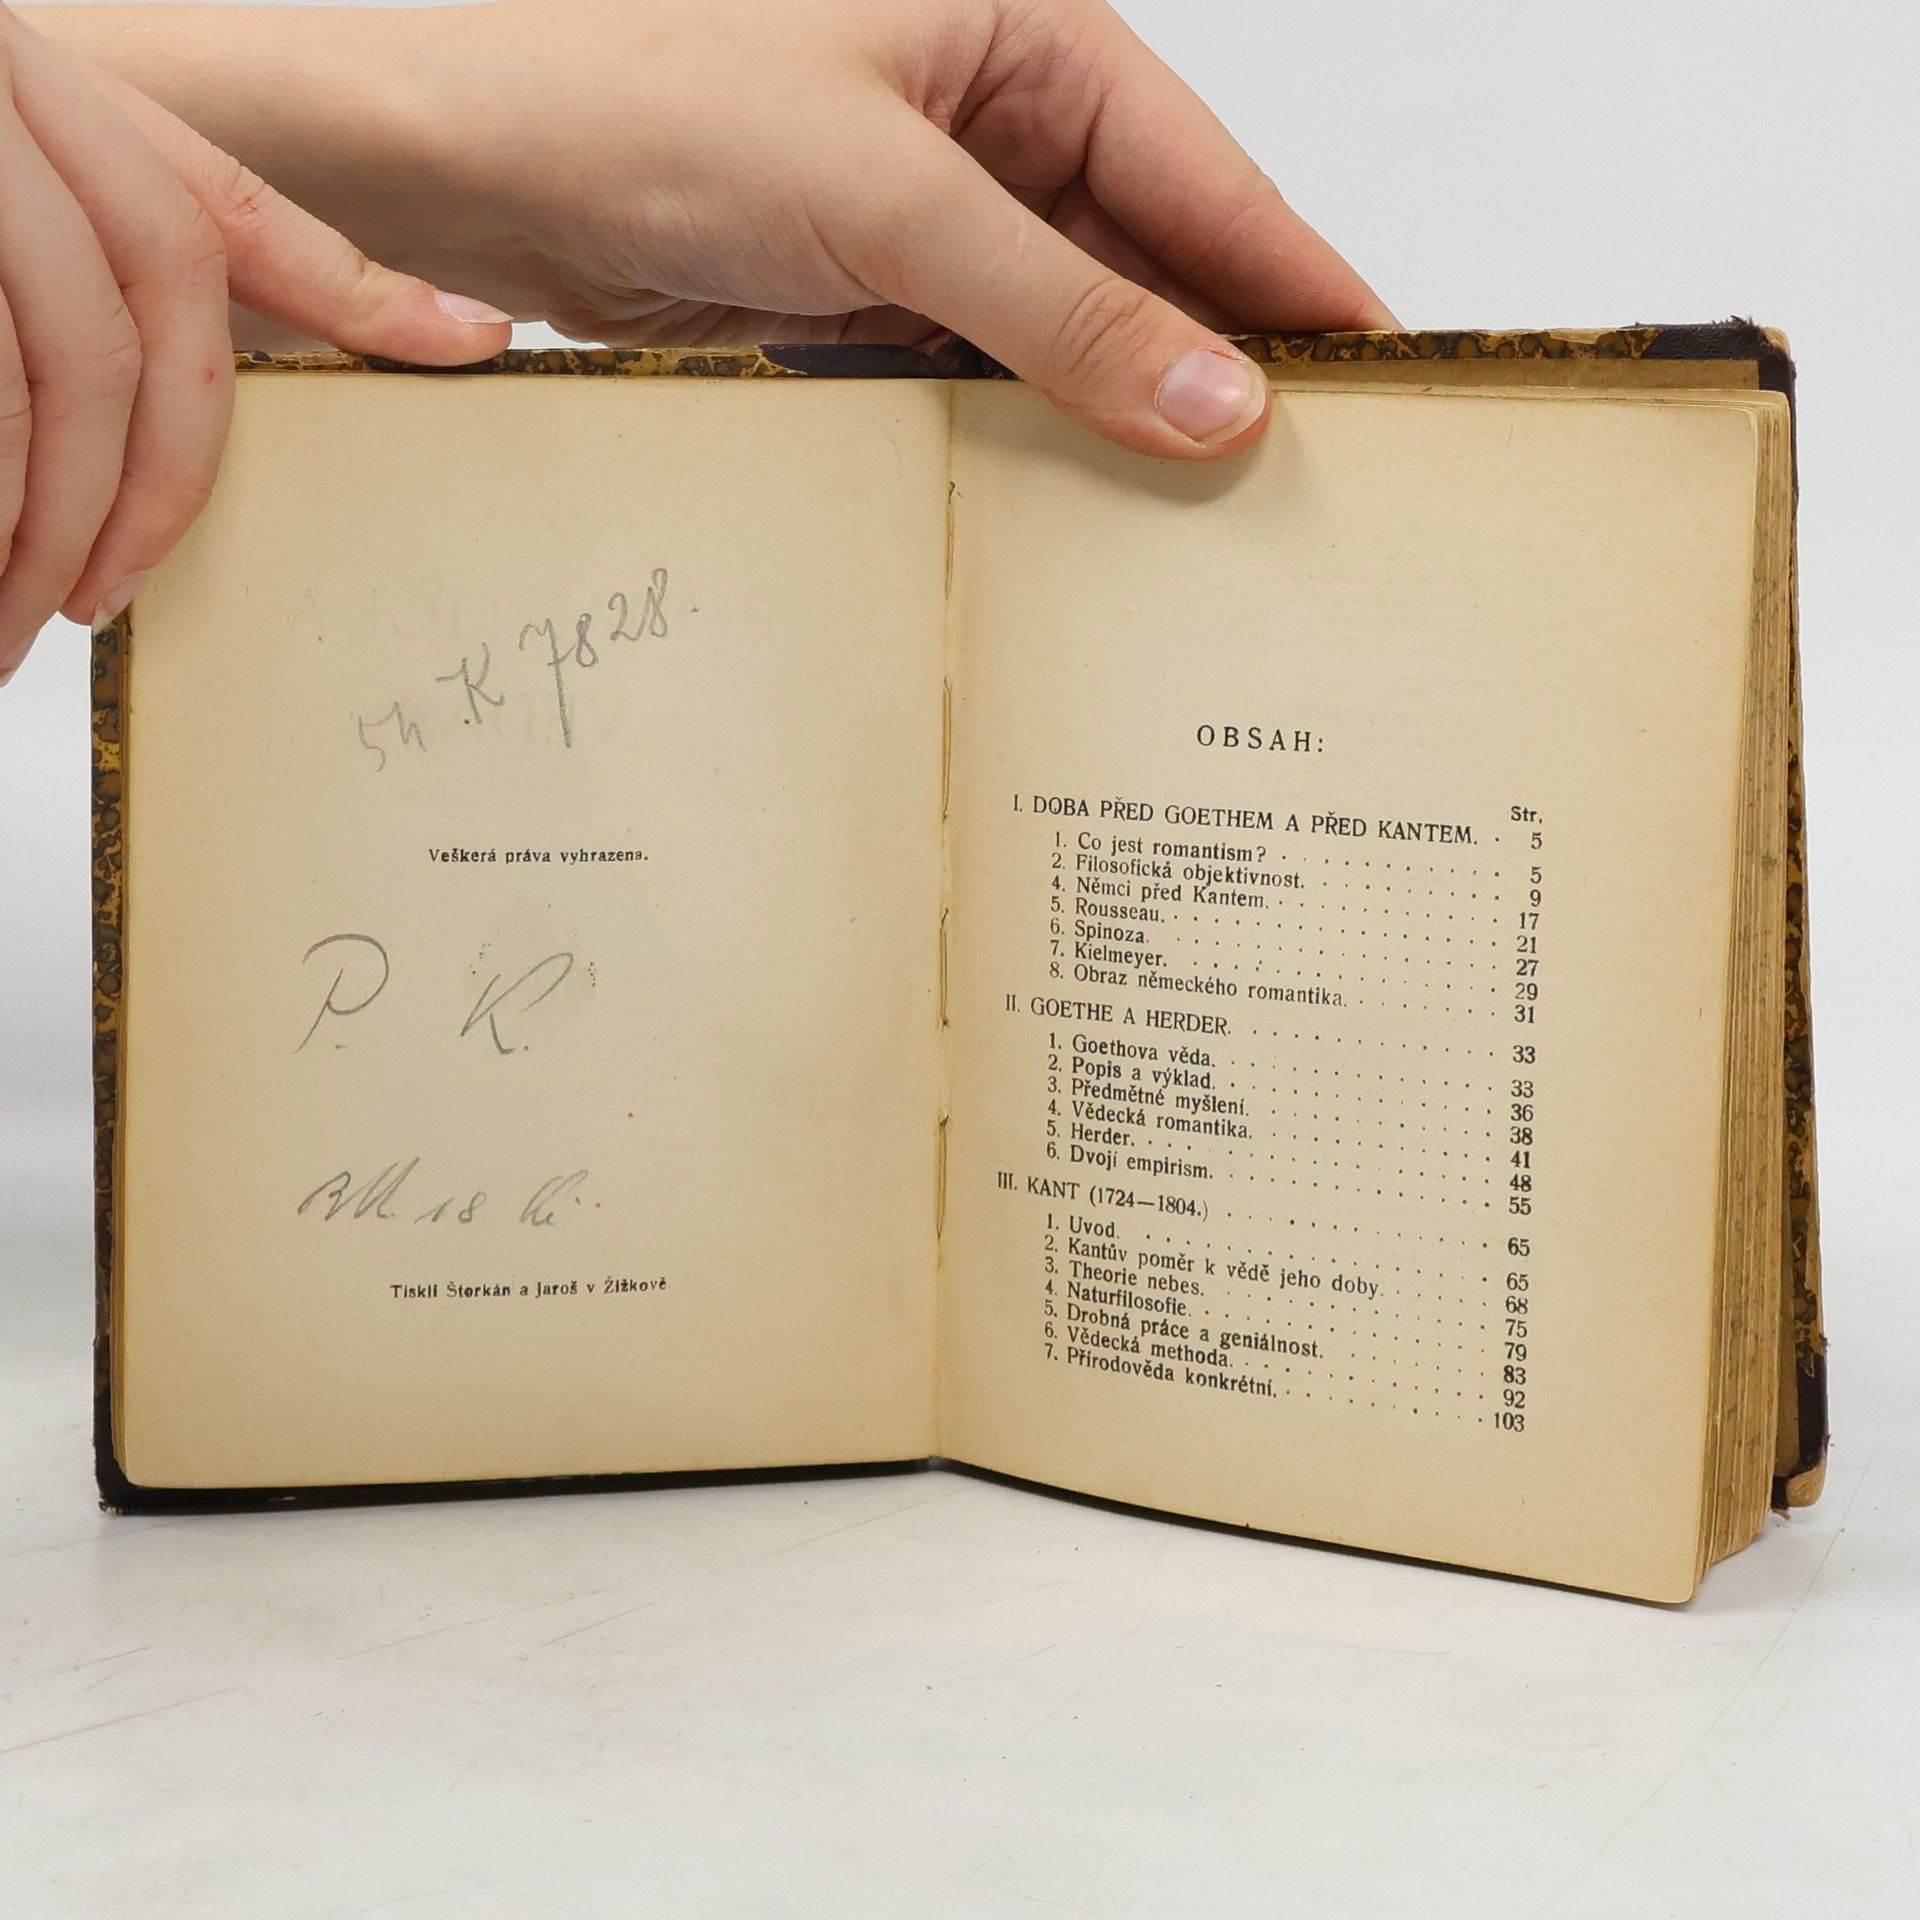 5h K 7828.
Veškerá práva vyhrazena.
P. K.
18
Tiskli Štorkán a Jaroš v Žižkově
OBSAH:
Str,
I. DOBA PŘED GOETHEM A PŘED KANTEM. . 5
1. Co jest romantism? . . . . . . . . . 5
2. Filosofická objektivnost. . . . . . . . 9
4. Němci před Kantem. . . . . . . . . . 17
5. Rousseau. . . . . . . . . . . . . 21
6. Spinoza. . . . . . . . . . . . . 27
7. Kielmeyer. . . . . . . . . . . . . 29
8. Obraz německého romantika. . . . . . . 31
II. GOETHE A HERDER. . . . . . . . . . 33
1. Goethova věda. . . . . . . . . . . 33
2. Popis a výklad. . . . . . . . . . . 36
3. Předmětné myšlení. . . . . . . . . . 38
4. Vědecká romantika. . . . . . . . . . 41
5. Herder. . . . . . . . . . . . . . 48
6. Dvojí empirism. . . . . . . . . . . 55
III. KANT (1724—1804.) . . . . . . . . . . 65
1. Uvod. . . . . . . . . . . . . . 65
2. Kantův poměr k vědě jeho doby. . . . . . 68
3. Theorie nebes. . . . . . . . . . . 75
4. Naturfilosofie. . . . . . . . . . . . 79
5. Drobná práce a geniálnost. . . . . . . 83
6. Vědecká methoda. . . . . . . . . . . 92
7. Přírodověda konkrétní. . . . . . . . . 103